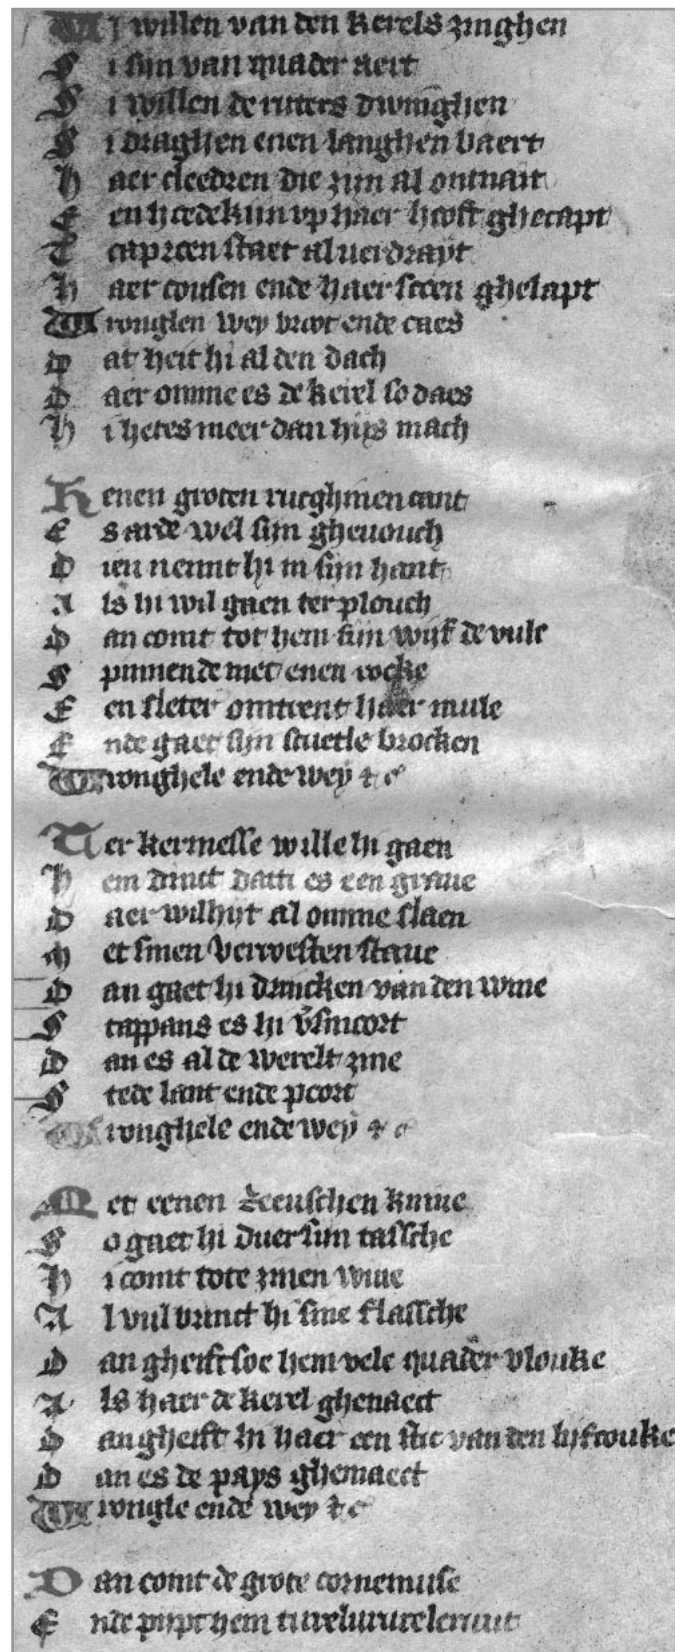 Wi willen van den kerels zinghen
Si siin van quader aert
Si willen de ruters dwinghen
Si draghen enen langhen baert
Haer cleedren die ziin al ontnait
Een hoedekiin up haer hooft ghecapt
Tcaproen staet al verdrayt
Haer cousen ende haer scoen ghelapt
Wronglen wey broot ende caes
Dat heit hi al den dach
Daer omme es de kerel so daes
Hi hetes meer dan hiis mach

Henen groten rucghinen cant
Es arde wel siin ghevouch
Dien neimt hi in siin hant
Als hi wil gaen ter plouch
Dan comt tot hem siin wiif de vule
Spinnende met enen rocke
Een sleter omtrent haer mule
Ende gaet siin scuetle brocken
Wronghele ende wey &c

Ter kermesse wille hi gaen
Hem dinct datti es een grave
Daer wilhiit al omme slaen
Met sinen verroesten stave
Dan gaet hi drincken van den wine
Stappans es hi v̄smoort
Dan es al de werelt zine
Stede lant ende poort
Wronghele ende wey &c

Met eenen zeeuschen knive
So gaet hi duer siin tassche
Hi comt tote zinen wive
Al vul brinct hi sine flassche
Dan gheift soe hem vele quader vlouke
Als haer de kerel ghenaect
Dan gheift hi haer een stic van den liifcouke
Dan es de pays ghemaect
Wrongle ende wey &c

Dan comt de grote cornemuse
Ende piipt hem turelurureleruut